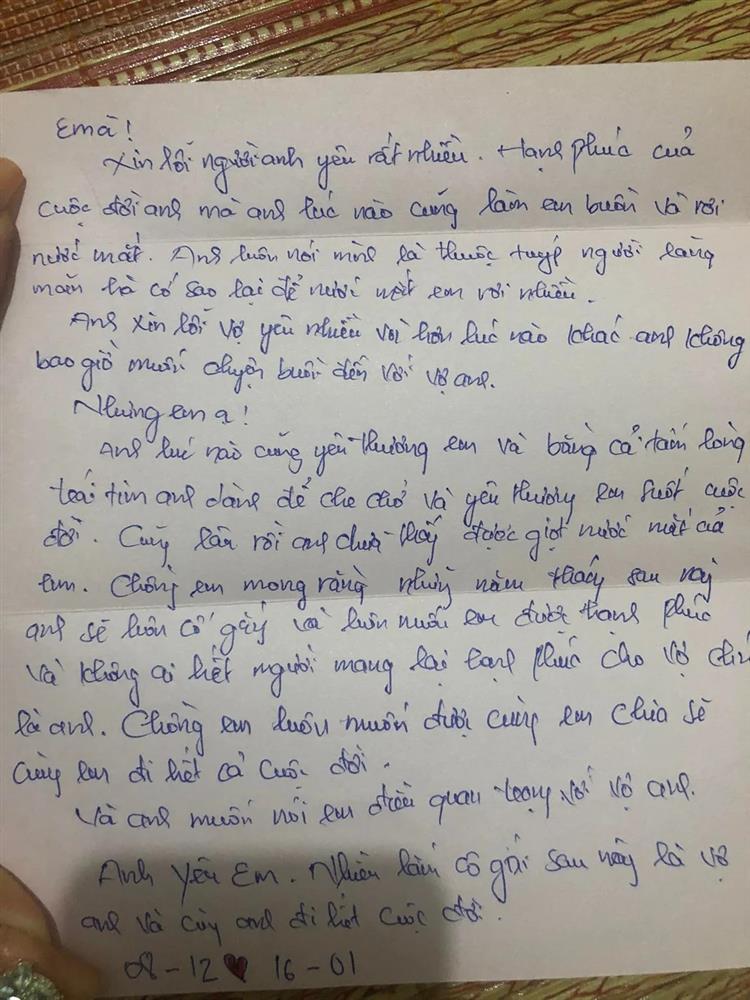 Em à!
Xin lỗi người anh yêu rất nhiều. Hạnh phúc của
cuộc đời anh mà anh lúc nào cũng làm em buồn và rơi
nước mắt. Anh luôn nói mình là thuộc tuýp người lãng
mạn mà có sao lại để nước mắt em rơi nhiều.
Anh xin lỗi vợ yêu nhiều với hơn lúc nào khác anh không
bao giờ muốn chuyện buồn đến với vợ anh.
Nhưng em ạ!
Anh lúc nào cũng yêu thương em và bằng cả tấm lòng
trái tim anh dành để che chở và yêu thương em suốt cuộc
đời. Cũng lần rồi anh chưa thấy được giọt nước mắt của
em. Chồng em mong rằng những năm tháng sau này
anh sẽ luôn cố gắng và luôn muốn em được hạnh phúc
và không ai hết người mang lại hạnh phúc cho vợ chính
là anh. Chồng em luôn muốn được cùng em chia sẻ
cùng em đi hết cả cuộc đời.
Và anh muốn nói em điều quan trọng với vợ anh.
Anh Yêu Em. Nhiều lắm cô gái sau này là vợ
anh và cùng anh đi hết cuộc đời.
08-12 ♥ 16-01